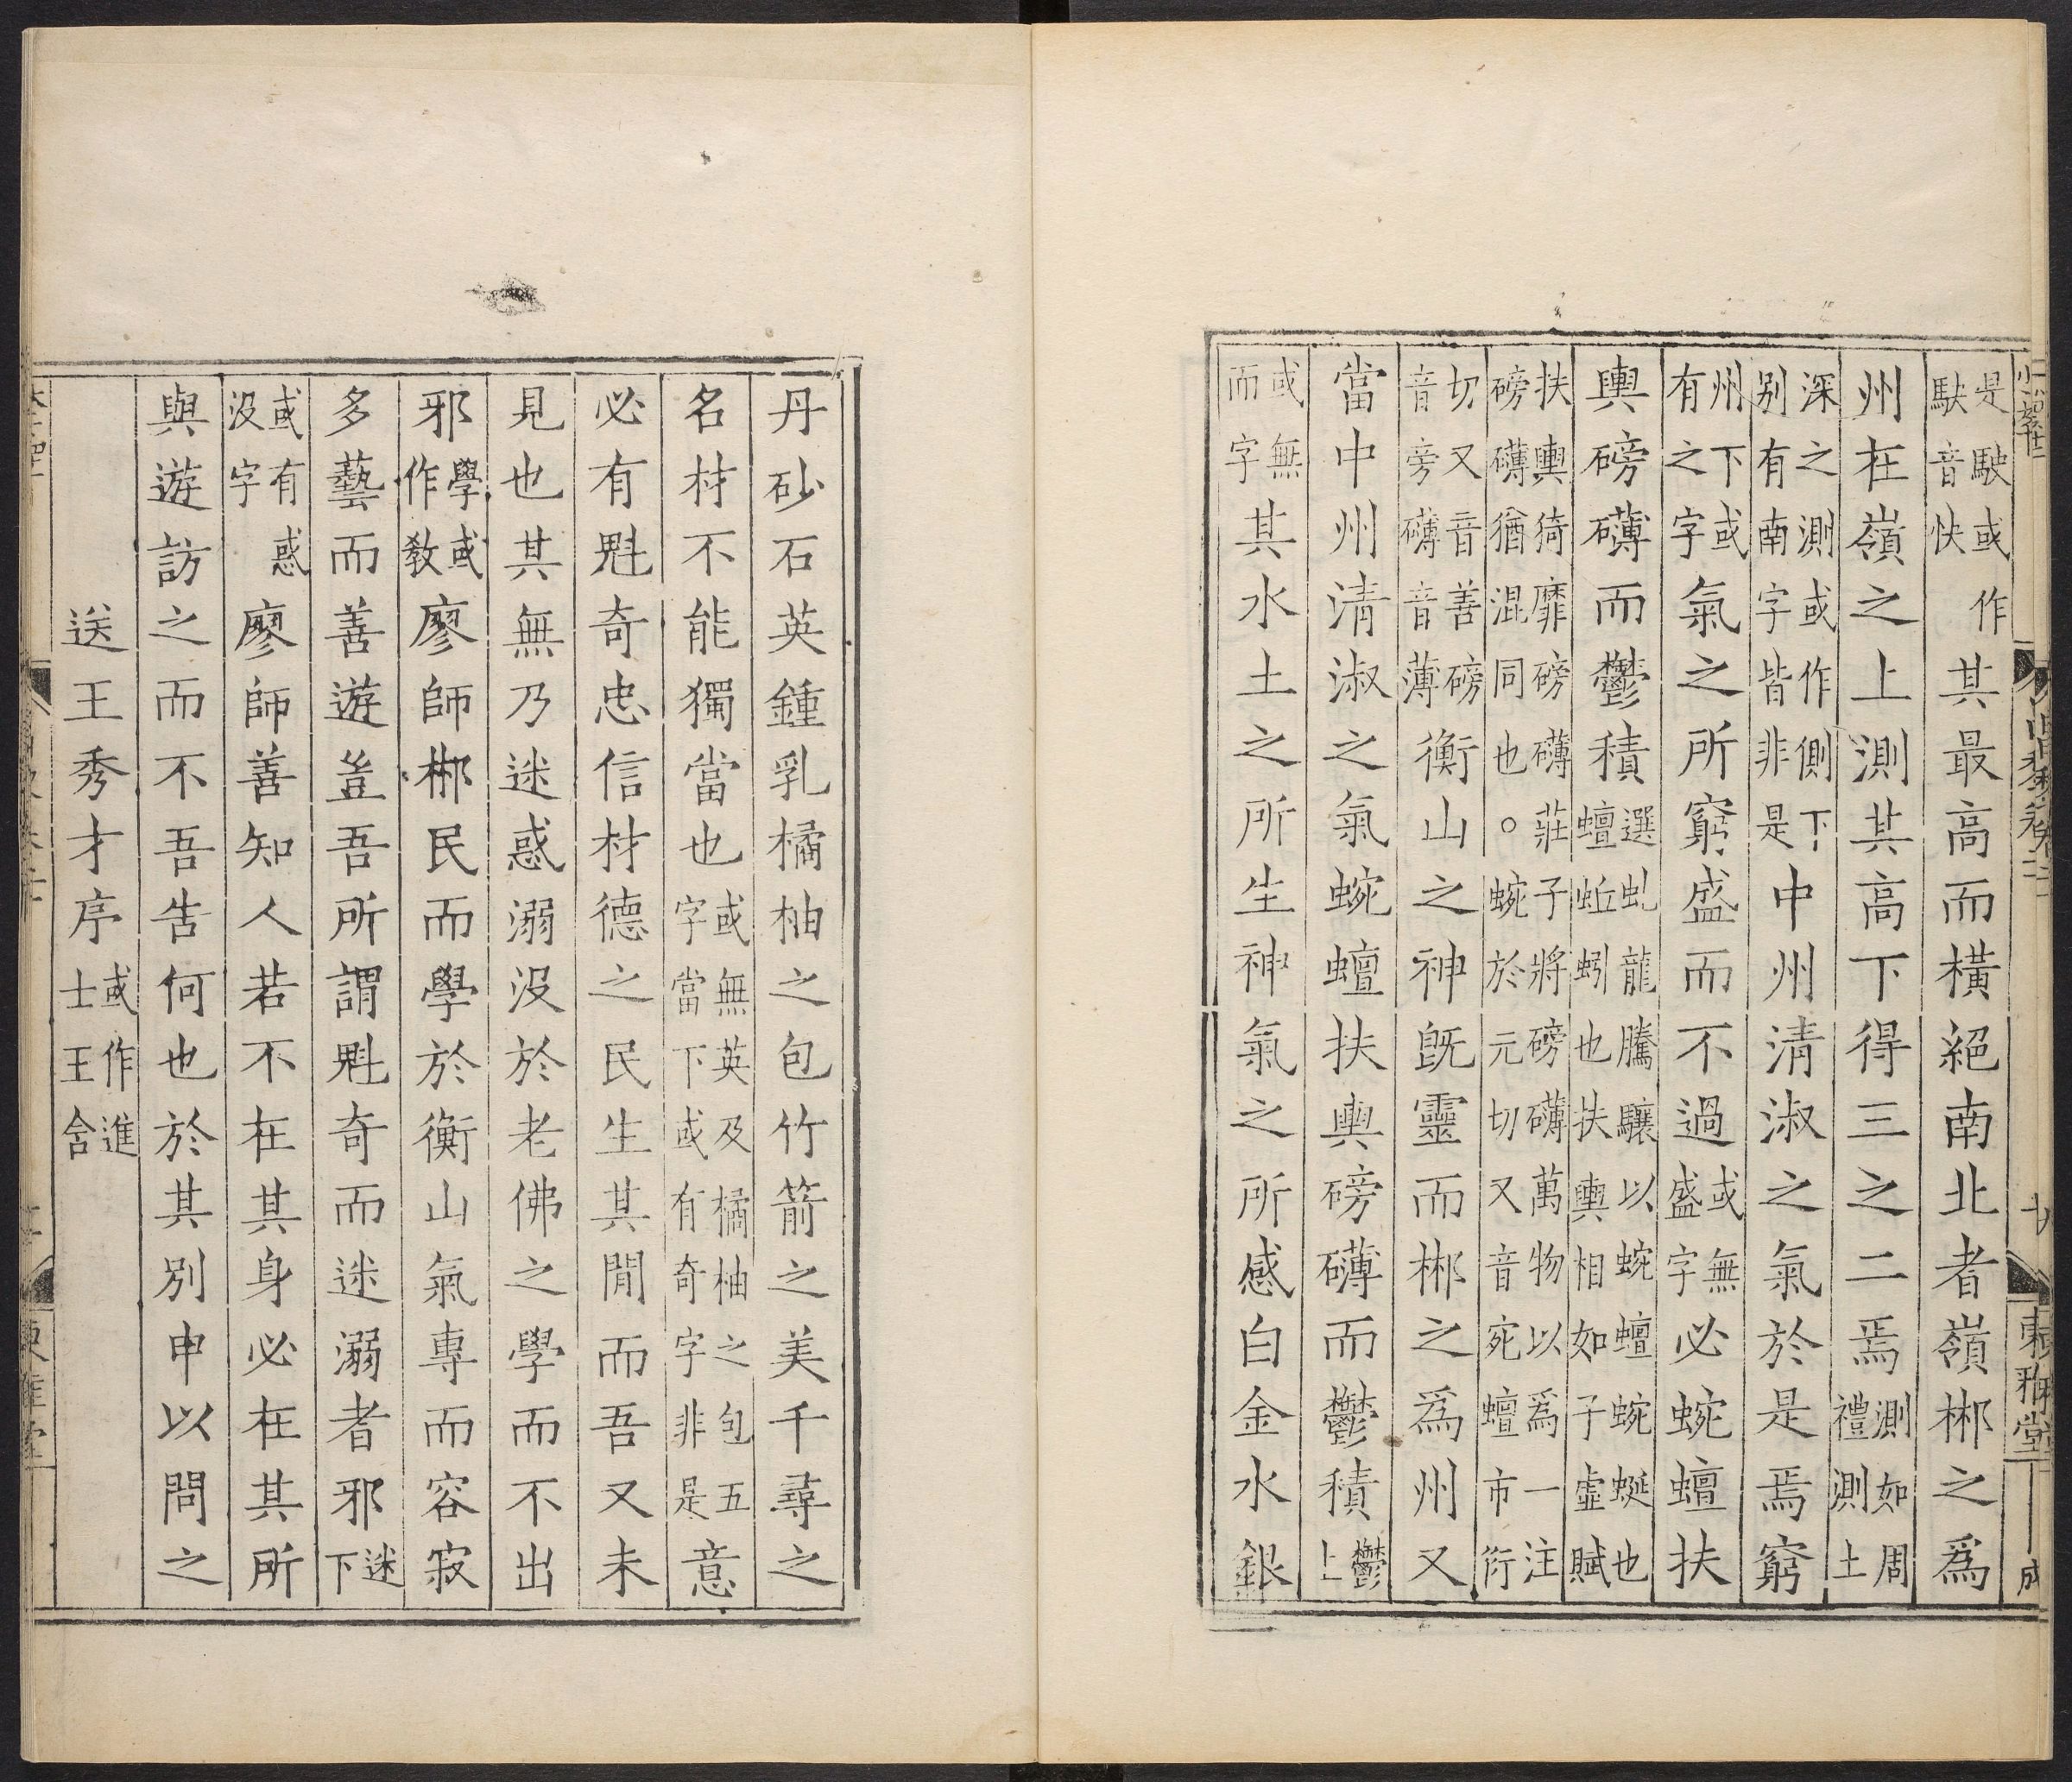 東雅堂 成
是駛或作駃音快其最高而橫絕南北者嶺郴之爲
州在嶺之上測其高下得三之二焉測如周禮測土
深之測或作側下别有南字皆非是中州清淑之氣於是焉窮
州下或有之字氣之所窮盛而不過或無盛字必蜿蟺扶
輿磅礴而鬱積選虬龍騰驤以蜿蟺蜿蜒也蟺蚯蚓也扶輿相如子虛賦
扶輿猗靡磅礴莊子將磅礴萬物以爲一注磅礴猶混同也。蜿於元切又音宛蟺市衍
切又音善磅音旁礴音薄衡山之神旣靈而郴之爲州又
當中州清淑之氣蜿蟺扶輿磅礴而鬱積鬱上
或無而字其水土之所生神氣之所感白金水銀
丹砂石英鍾乳橘柚之包竹箭之美千尋之
名材不能獨當也或無英及橘柚之包五字當下或有奇字非是意
必有魁奇忠信材德之民生其閒而吾又未
見也其無乃迷惑溺没於老佛之學而不出
邪學或作敎廖師郴民而學於衡山氣專而容寂
多藝而善遊豈吾所謂魁奇而迷溺者邪迷下
或有惑没字廖師善知人若不在其身必在其所
與遊訪之而不吾告何也於其別申以問之
送王秀才序或作進士王含